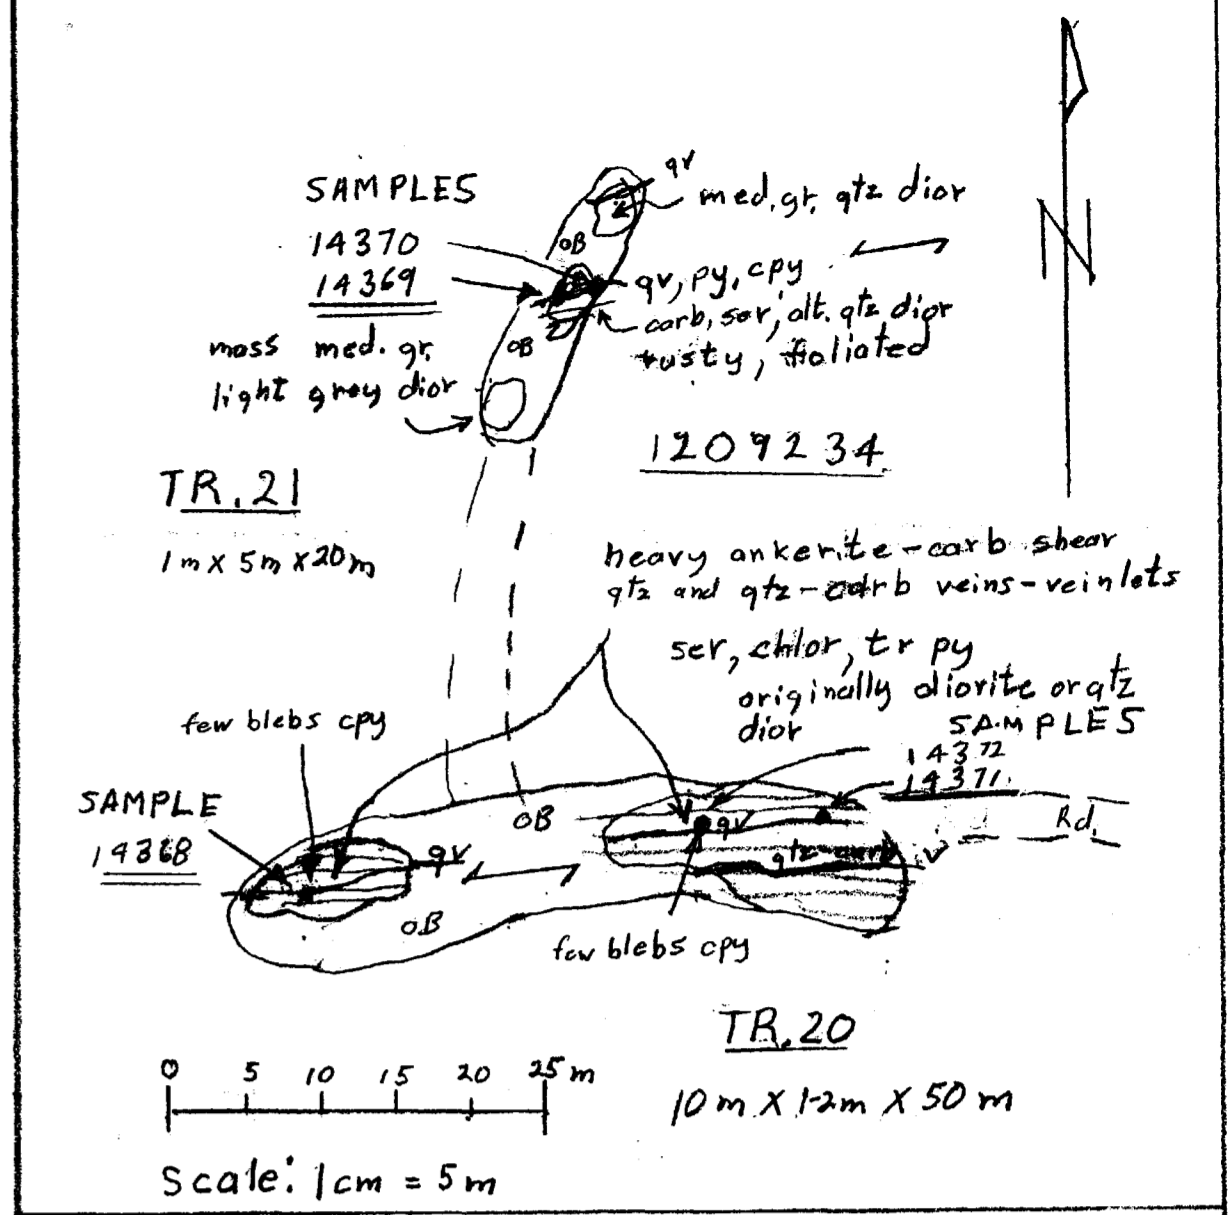 qv
SAMPLES
med. gr. qtz dior
14370
OB
14369
qv, py, cpy
carb, ser, alt. qtz dior
rusty, foliated
mass med. gr.
light grey dior
OB
1209234
N
TR.21
1m X 5m X 20m
heavy ankerite-carb shear
qtz and qtz-carb veins-veinlets
ser, chlor, tr py
originally diorite or qtz
dior
few blebs cpy
SAMPLES
14372
14371
SAMPLE
14368
OB
qv
Rd.
qv
qtz-carb
v
OB
few blebs cpy
TR.20
10m X 1-2m X 50m
0 5 10 15 20 25 m
Scale: 1cm = 5m